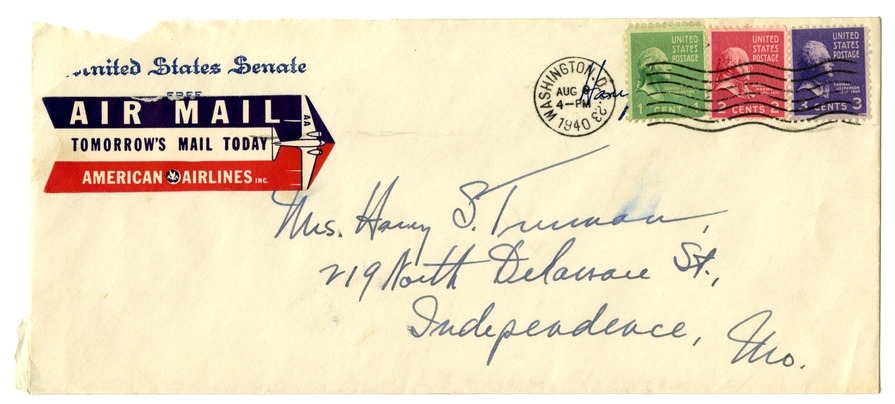 United States Senate
FREE
AIR MAIL
AA
TOMORROW'S MAIL TODAY
AMERICAN AIRLINES INC.
WASHINGTON, D.C.
AUG 9
4-PM
1940
23
UNITED STATES POSTAGE
1 CENT 1
UNITED STATES POSTAGE
2 CENTS 2
UNITED STATES POSTAGE
THOMAS JEFFERSON
3 CENTS 3
Mrs. Harry S. Truman,
219 North Delaware St.,
Independence, Mo.